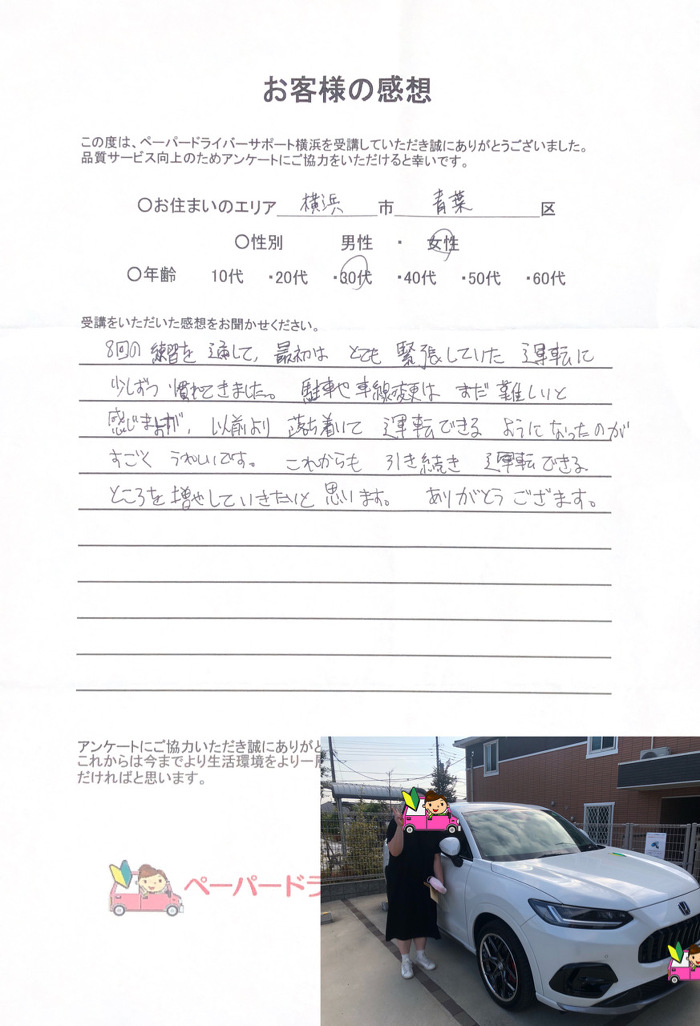 お客様の感想
この度は、ペーパードライバーサポート横浜を受講していただき誠にありがとうございました。
品質サービス向上のためアンケートにご協力をいただけると幸いです。
〇お住まいのエリア 横浜 市 青葉 区
〇性別 男性 ・ 女性
〇年齢 10代 ・20代 ・30代 ・40代 ・50代 ・60代
受講をいただいた感想をお聞かせください。
8回の練習を通して、最初は とても 緊張していた 運転に
少しずつ 慣れてきました。 駐車や車線変更は まだ 難しいと
感じますが、以前より 落ち着いて 運転できる ようになったのが
すごく うれしいです。 これからも 引き続き 運転できる
ところを増やしていきたいと思います。 ありがとうござます。
アンケートにご協力いただき誠にありがと
これからは今までより生活環境をより一層
だければと思います。
ペーパードラ